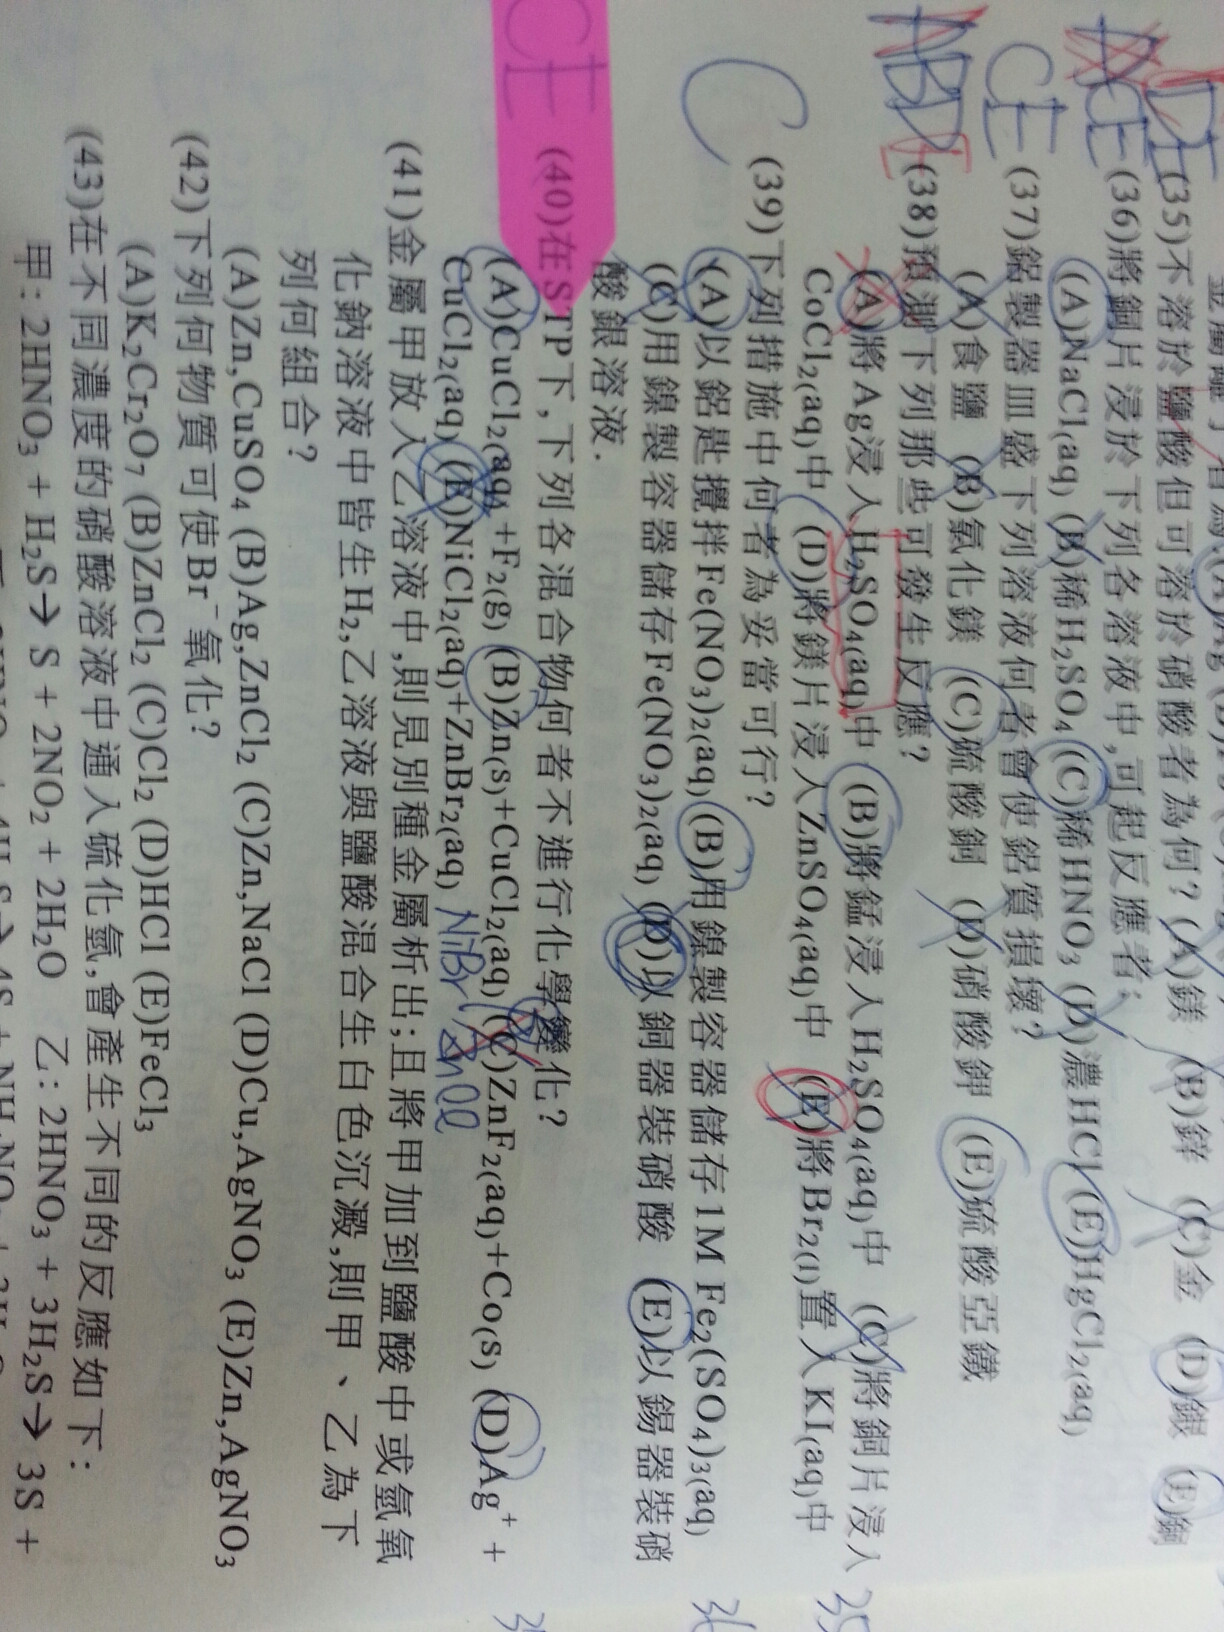 (35)不溶於鹽酸但可溶於硝酸者為何? (A)鎂 (B)鋅 (C)金 (D)銀 (E)銅
(36)將銅片浸於下列各溶液中,可起反應者:
(A)NaCl(aq) (B)稀H₂SO₄ (C)稀HNO₃ (D)濃HCl (E)HgCl₂(aq)
(37)鋁製器皿盛下列溶液何者會使鋁質損壞?
(A)食鹽 (B)氯化鎂 (C)硫酸銅 (D)硝酸鉀 (E)硫酸亞鐵
(38)預測下列那些可發生反應?
(A)將Ag浸入H₂SO₄(aq)中 (B)將錳浸入H₂SO₄(aq)中 (C)將銅片浸入
CoCl₂(aq)中 (D)將鎂片浸入ZnSO₄(aq)中 (E)將Br₂(l)置入KI(aq)中
(39)下列措施中何者為妥當可行?
(A)以鋁匙攪拌Fe(NO₃)₂(aq) (B)用鎳製容器儲存1M Fe₂(SO₄)₃(aq)
(C)用鎳製容器儲存Fe(NO₃)₂(aq) (D)以銅器裝硝酸 (E)以錫器裝硝
酸銀溶液.
(40)在STP下,下列各混合物何者不進行化學變化?
(A)CuCl₂(aq)+F₂(g) (B)Zn(s)+CuCl₂(aq) (C)ZnF₂(aq)+Co(s) (D)Ag⁺ +
CuCl₂(aq) (E)NiCl₂(aq)+ZnBr₂(aq)
(41)金屬甲放入乙溶液中,則見別種金屬析出;且將甲加到鹽酸中或氫氧
化鈉溶液中皆生H₂,乙溶液與鹽酸混合生白色沉澱,則甲、乙為下
列何組合?
(A)Zn,CuSO₄ (B)Ag,ZnCl₂ (C)Zn,NaCl (D)Cu,AgNO₃ (E)Zn,AgNO₃
(42)下列何物質可使Br⁻氧化?
(A)K₂Cr₂O₇ (B)ZnCl₂ (C)Cl₂ (D)HCl (E)FeCl₃
(43)在不同濃度的硝酸溶液中通入硫化氫,會產生不同的反應如下:
甲: 2HNO₃ + H₂S→ S + 2NO₂ + 2H₂O 乙: 2HNO₃ + 3H₂S→ 3S +
CE
C
CE